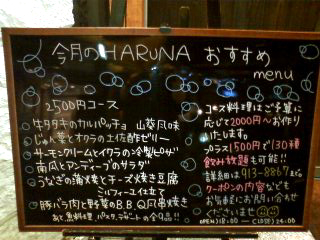 今月のHARUNA おすすめ
menu
2500円コース
牛タタキのカルパッチョ 山葵風味
じゅん菜とオクラの土佐酢ゼリー
サーモンクリームとイクラの冷製ピザ
南瓜とアンディーブのサラダ
うなぎの蒲焼とチーズ焼き豆腐
ミルフィーユ仕立て
豚バラ肉と野菜のB.B.Q風串焼き
あと魚料理、パスタ、デザートの全9品!!
コース料理はご予算に
応じて2000円〜お作り
いたします。
プラス1500円で130種
飲み放題も可能!!
詳細は☎913-8867まで。
クーポンの内容なども
お気軽にお問い合わせ
くださいませ
OPEN)18:00〜CLOSE)24:00